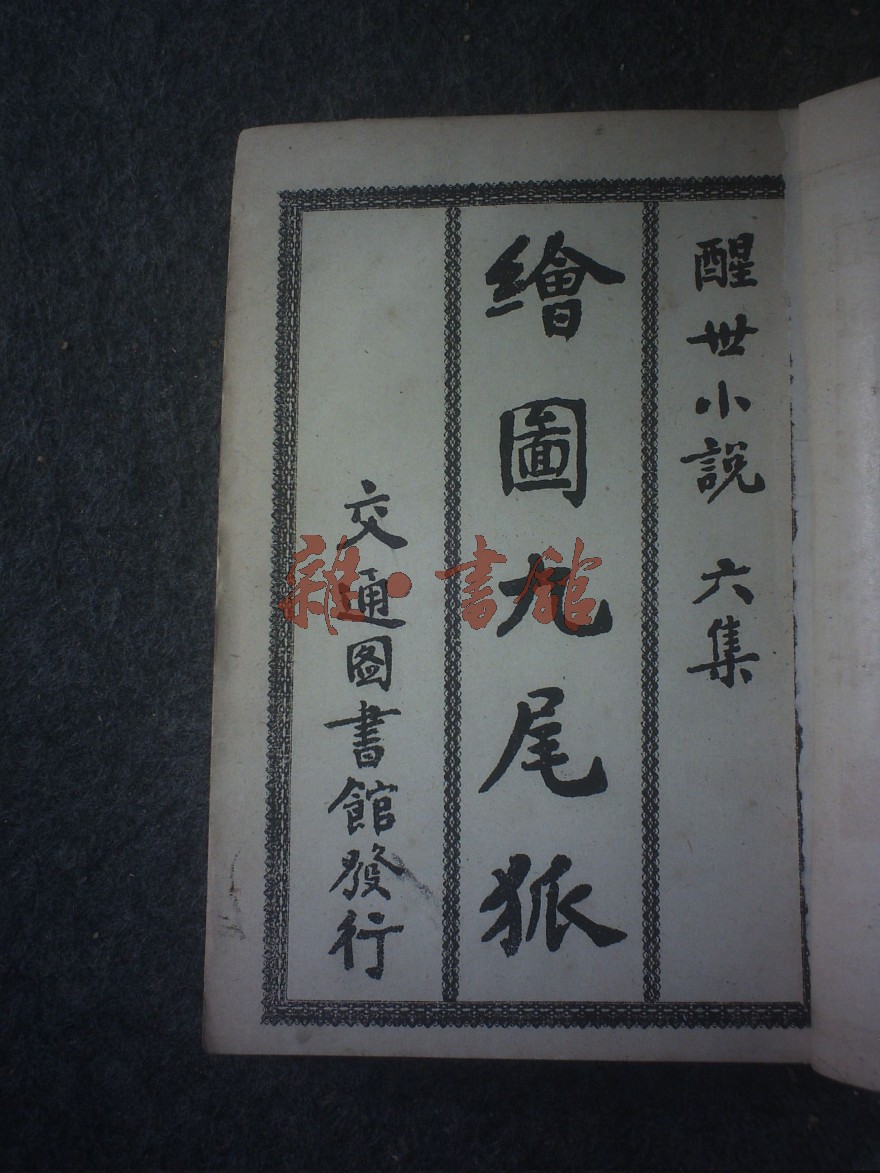 醒世小說 六集
繪圖九尾狐
交通图書館發行
雜·書館